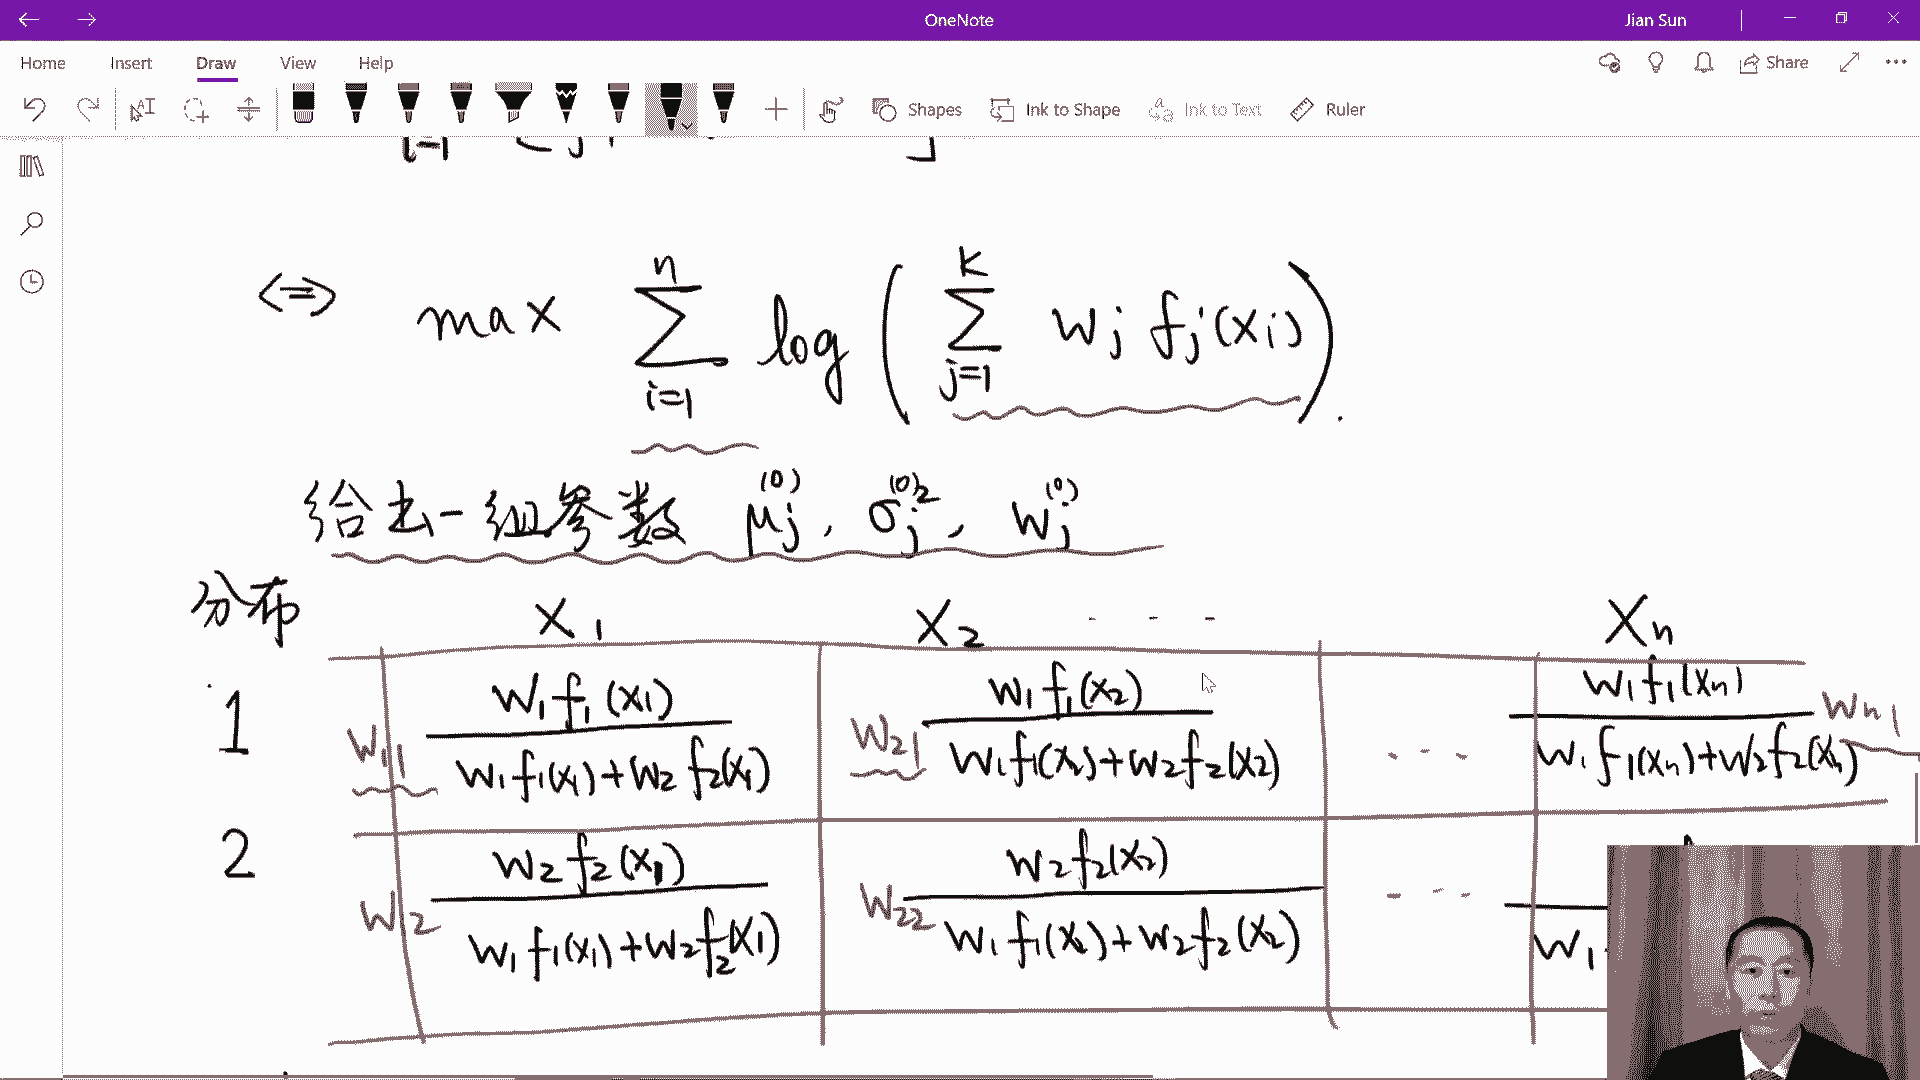 OneNote
Jian Sun
Home Insert Draw View Help
Share
Shapes Ink to Shape Ink to Text Ruler
<=> max \sum_{i=1}^{n} log ( \sum_{j=1}^{K} w_j f_j(x_i) ).
给去一组参数 μ_j^{(0)}, σ_j^{(0)2}, w_j^{(0)}
分布 X_1 X_2 - - - X_n
1 w_{11} \frac{w_1 f_1(x_1)}{w_1 f_1(x_1)+w_2 f_2(x_1)} w_{21} \frac{w_1 f_1(x_2)}{w_1 f_1(x_2)+w_2 f_2(x_2)} - - - \frac{w_1 f_1(x_n)}{w_1 f_1(x_n)+w_2 f_2(x_n)} w_{n1}
2 w_{12} \frac{w_2 f_2(x_1)}{w_1 f_1(x_1)+w_2 f_2(x_1)} w_{22} \frac{w_2 f_2(x_2)}{w_1 f_1(x_2)+w_2 f_2(x_2)} - - - w_1